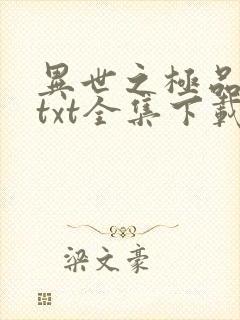 異世之極品
txt全集下載
梁文豪